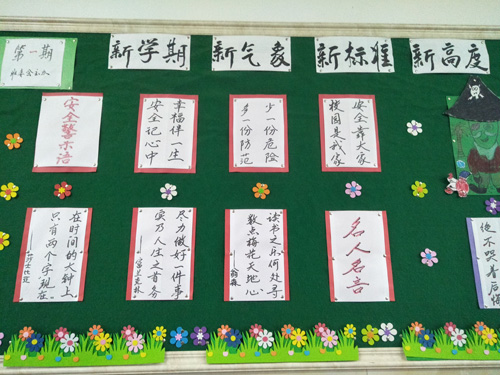 第一期
新学期
新气象
新标准
新高度
安全警示语
幸福伴一生
安全记心中
少一份危险
多一份防范
安全靠大家
校园是我家
在时间的大钟上
只有两个字现在
——莎士比亚
尽力做好一件事
实乃人生之首务
——富兰克林
读书之乐何处寻
数点梅花天地心
——翁森
名人名言